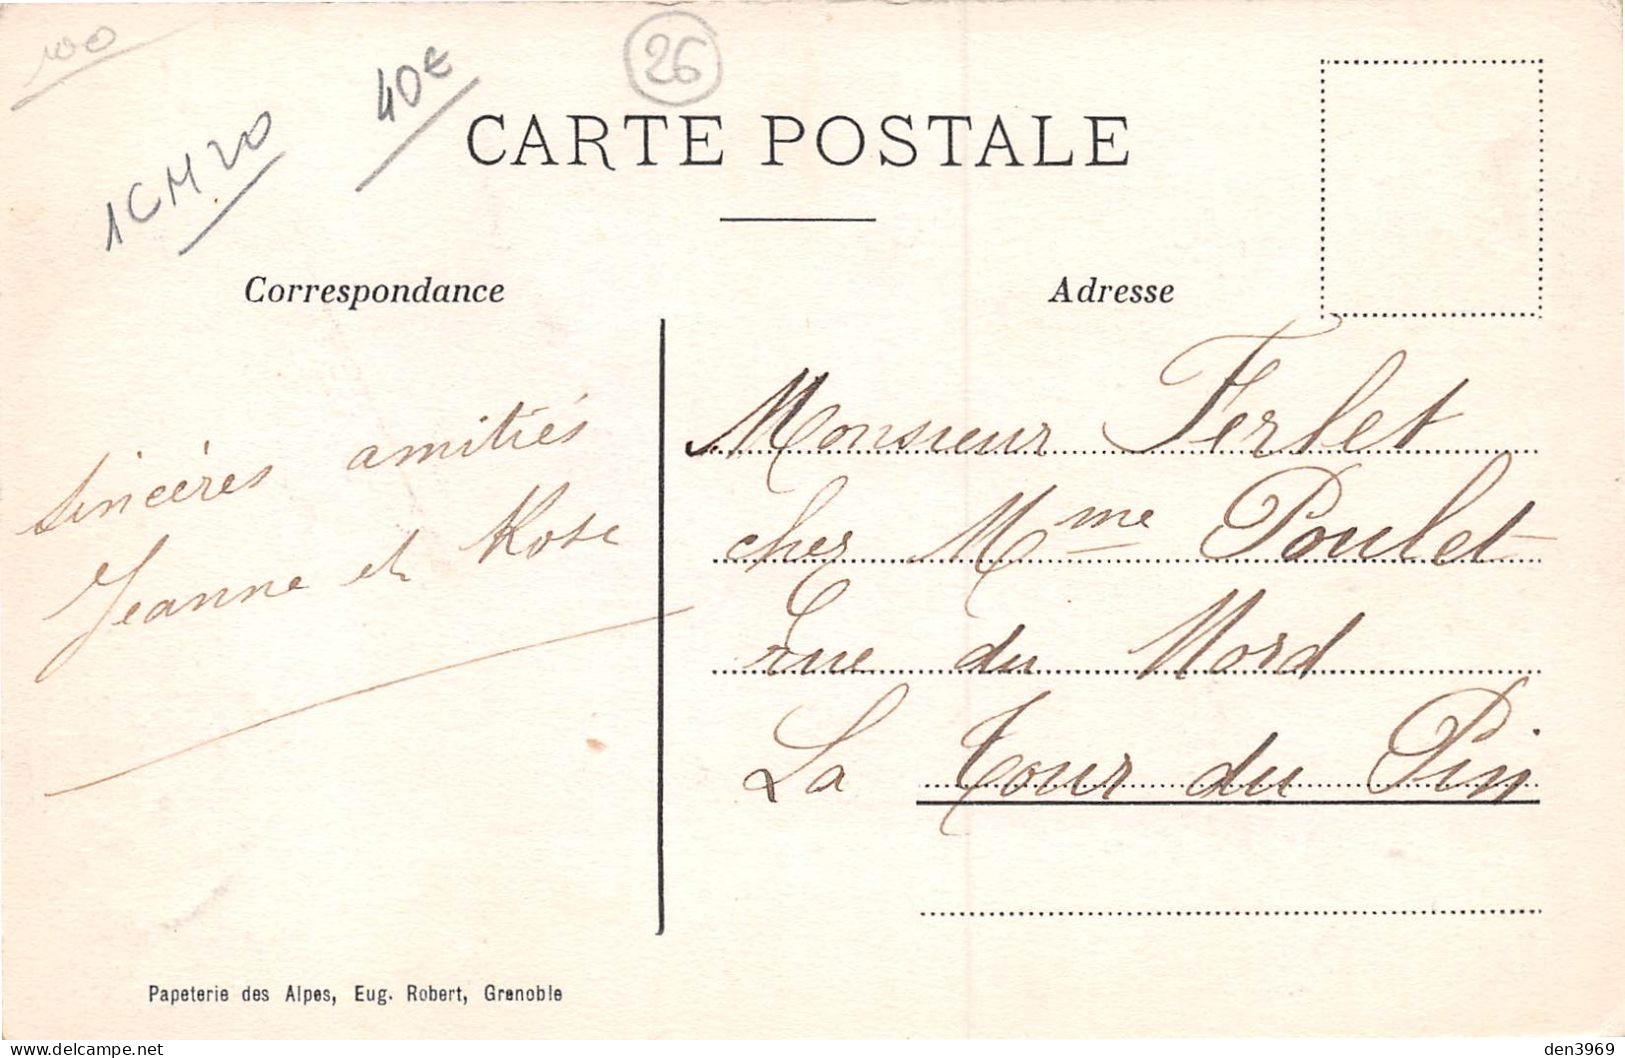 100
1CM20
40€
26
CARTE POSTALE
Correspondance
Adresse
Sincères amitiés
Jeanne et Rose
Monsieur Ferlet
chez Mme Poulet
rue du Nord
La Tour du Pin
Papeterie des Alpes, Eug. Robert, Grenoble
delcampe.net
den3969